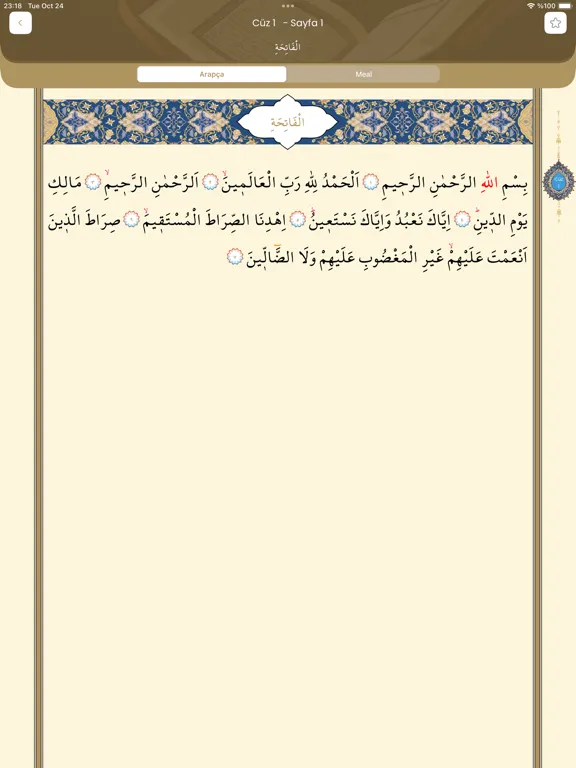 23:18 Tue Oct 24 %100
Cüz 1 - Sayfa 1
الْفَاتِحَةِ
Arapça Meal
الْفَاتِحَةِ
بِسْمِ اللّٰهِ الرَّحْمٰنِ الرَّح۪يمِ ﴿١﴾ اَلْحَمْدُ لِلّٰهِ رَبِّ الْعَالَم۪ينَۙ ﴿٢﴾ اَلرَّحْمٰنِ الرَّح۪يمِۙ ﴿٣﴾ مَالِكِ
يَوْمِ الدّ۪ينِۜ ﴿٤﴾ اِيَّاكَ نَعْبُدُ وَاِيَّاكَ نَسْتَع۪ينُۜ ﴿٥﴾ اِهْدِنَا الصِّرَاطَ الْمُسْتَق۪يمَۙ ﴿٦﴾ صِرَاطَ الَّذ۪ينَ
اَنْعَمْتَ عَلَيْهِمْۙ غَيْرِ الْمَغْضُوبِ عَلَيْهِمْ وَلَا الضَّٓالّ۪ينَ ﴿٧﴾